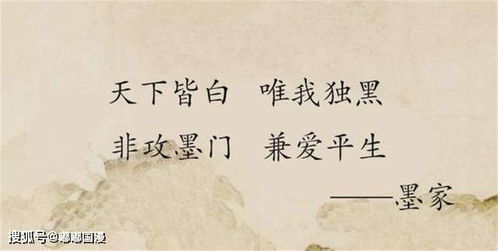 天下皆白 唯我独黑
非攻墨门 兼爱平生
——墨家
搜狐号@嘟嘟国漫